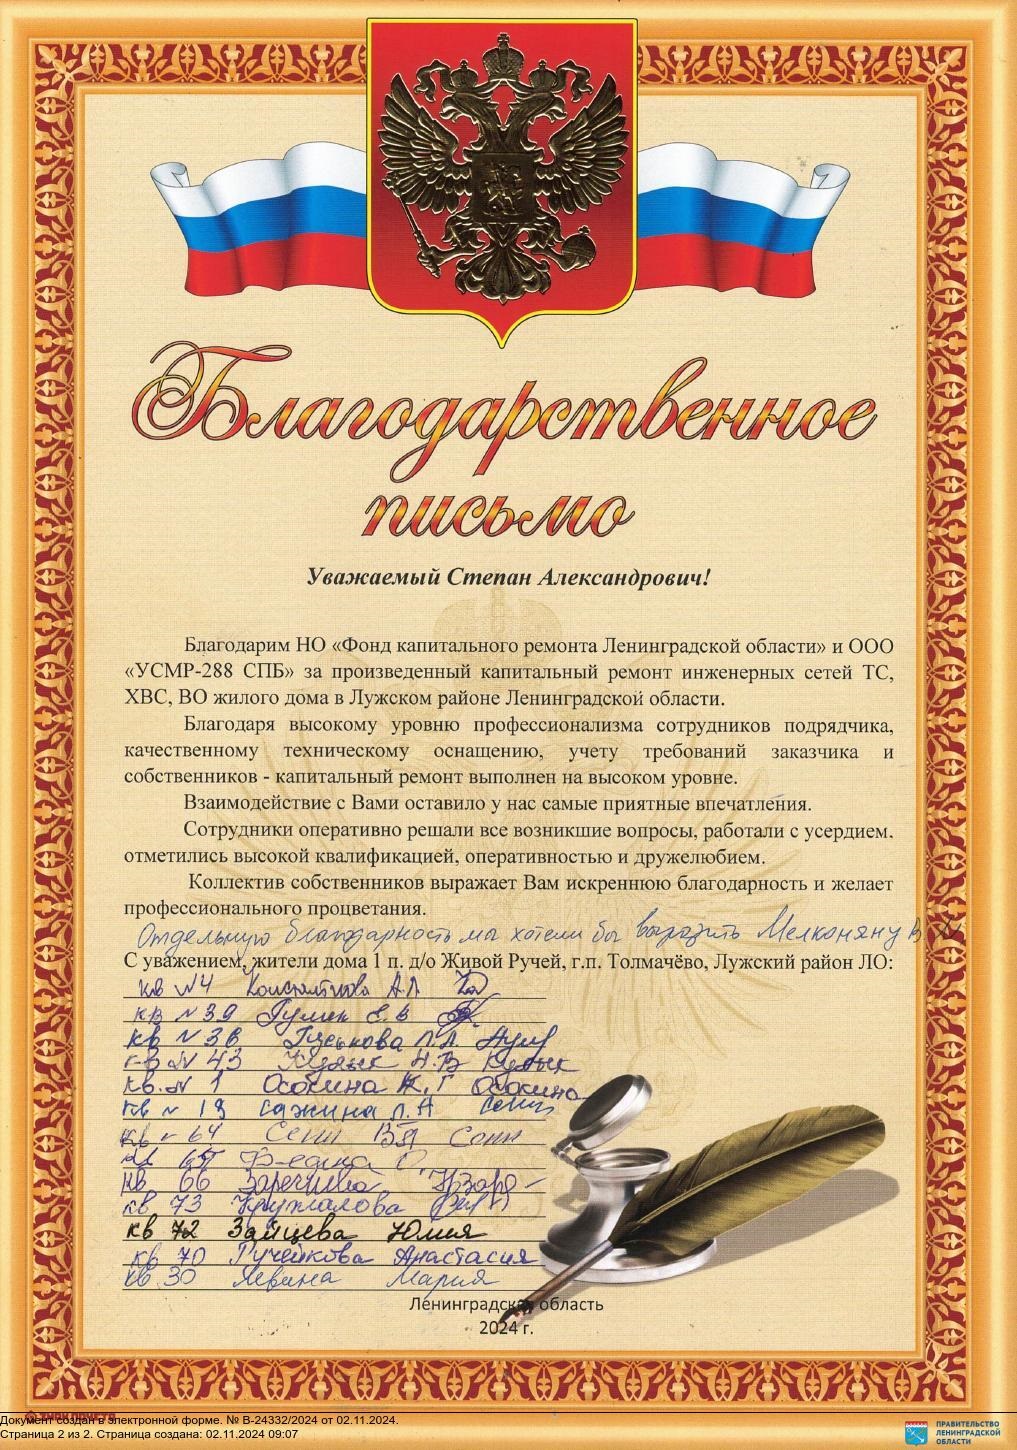 Благодарственное
письмо
Уважаемый Степан Александрович!
Благодарим НО «Фонд капитального ремонта Ленинградской области» и ООО
«УСМР-288 СПБ» за произведенный капитальный ремонт инженерных сетей ТС,
ХВС, ВО жилого дома в Лужском районе Ленинградской области.
Благодаря высокому уровню профессионализма сотрудников подрядчика,
качественному техническому оснащению, учету требований заказчика и
собственников - капитальный ремонт выполнен на высоком уровне.
Взаимодействие с Вами оставило у нас самые приятные впечатления.
Сотрудники оперативно решали все возникшие вопросы, работали с усердием,
отметились высокой квалификацией, оперативностью и дружелюбием.
Коллектив собственников выражает Вам искреннюю благодарность и желает
профессионального процветания.
Отдельную благодарность мы хотели бы выразить Мелконяну В
С уважением, жители дома 1 п. д/о Живой Ручей, г.п. Толмачёво, Лужский район ЛО:
кв №4
кв №39 Е.В
кв №36 Гуськова Л.Л.
кв №43 Н.В
кв. №1 Особкина
кв №19 Сажина Л.А
кв 64
кв
кв 66
кв 73 Кружалова
кв 72 Зайцева Юлия
кв 70 Ручейкова Анастасия
кв 30 Левина Мария
Ленинградская область
2024 г.
Документ создан в электронной форме. № В-24332/2024 от 02.11.2024.
Страница 2 из 2. Страница создана: 02.11.2024 09:07
ПРАВИТЕЛЬСТВО
ЛЕНИНГРАДСКОЙ
ОБЛАСТИ